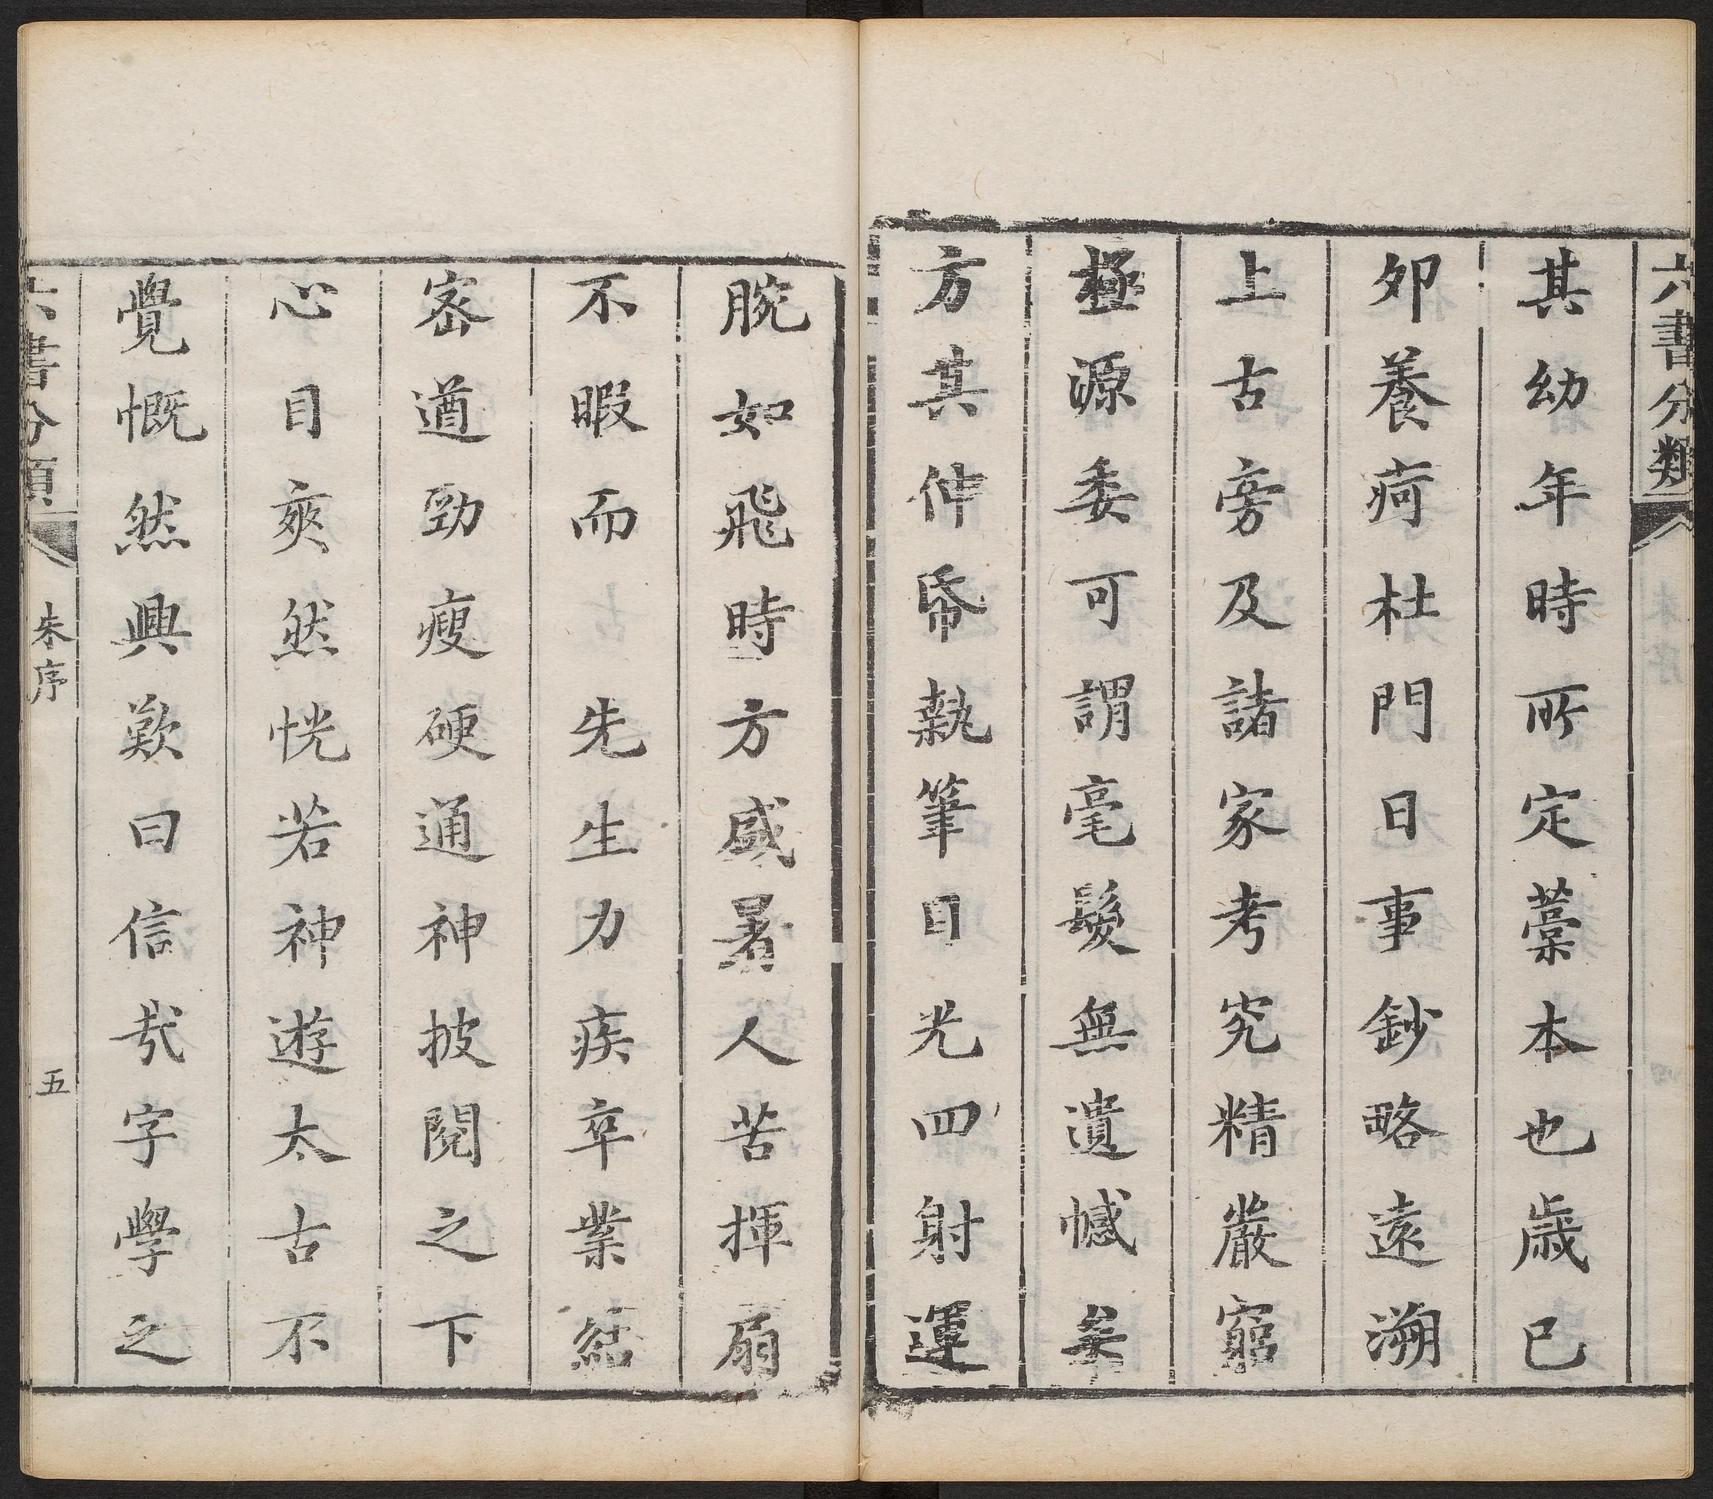 六書分類
其幼年時所定藁本也歲已
夘養疴杜門日事鈔略遠溯
上古旁及諸家考究精嚴窮
極源委可謂毫髮無遺憾矣
方其伸帋執筆目光四射運
腕如飛時方盛暑人苦揮扇
不暇而　先生力疾卒業結
密遒勁瘦硬通神披閱之下
心目爽然恍若神遊太古不
覺慨然興歎曰信哉字學之
六書分類
朱序
五